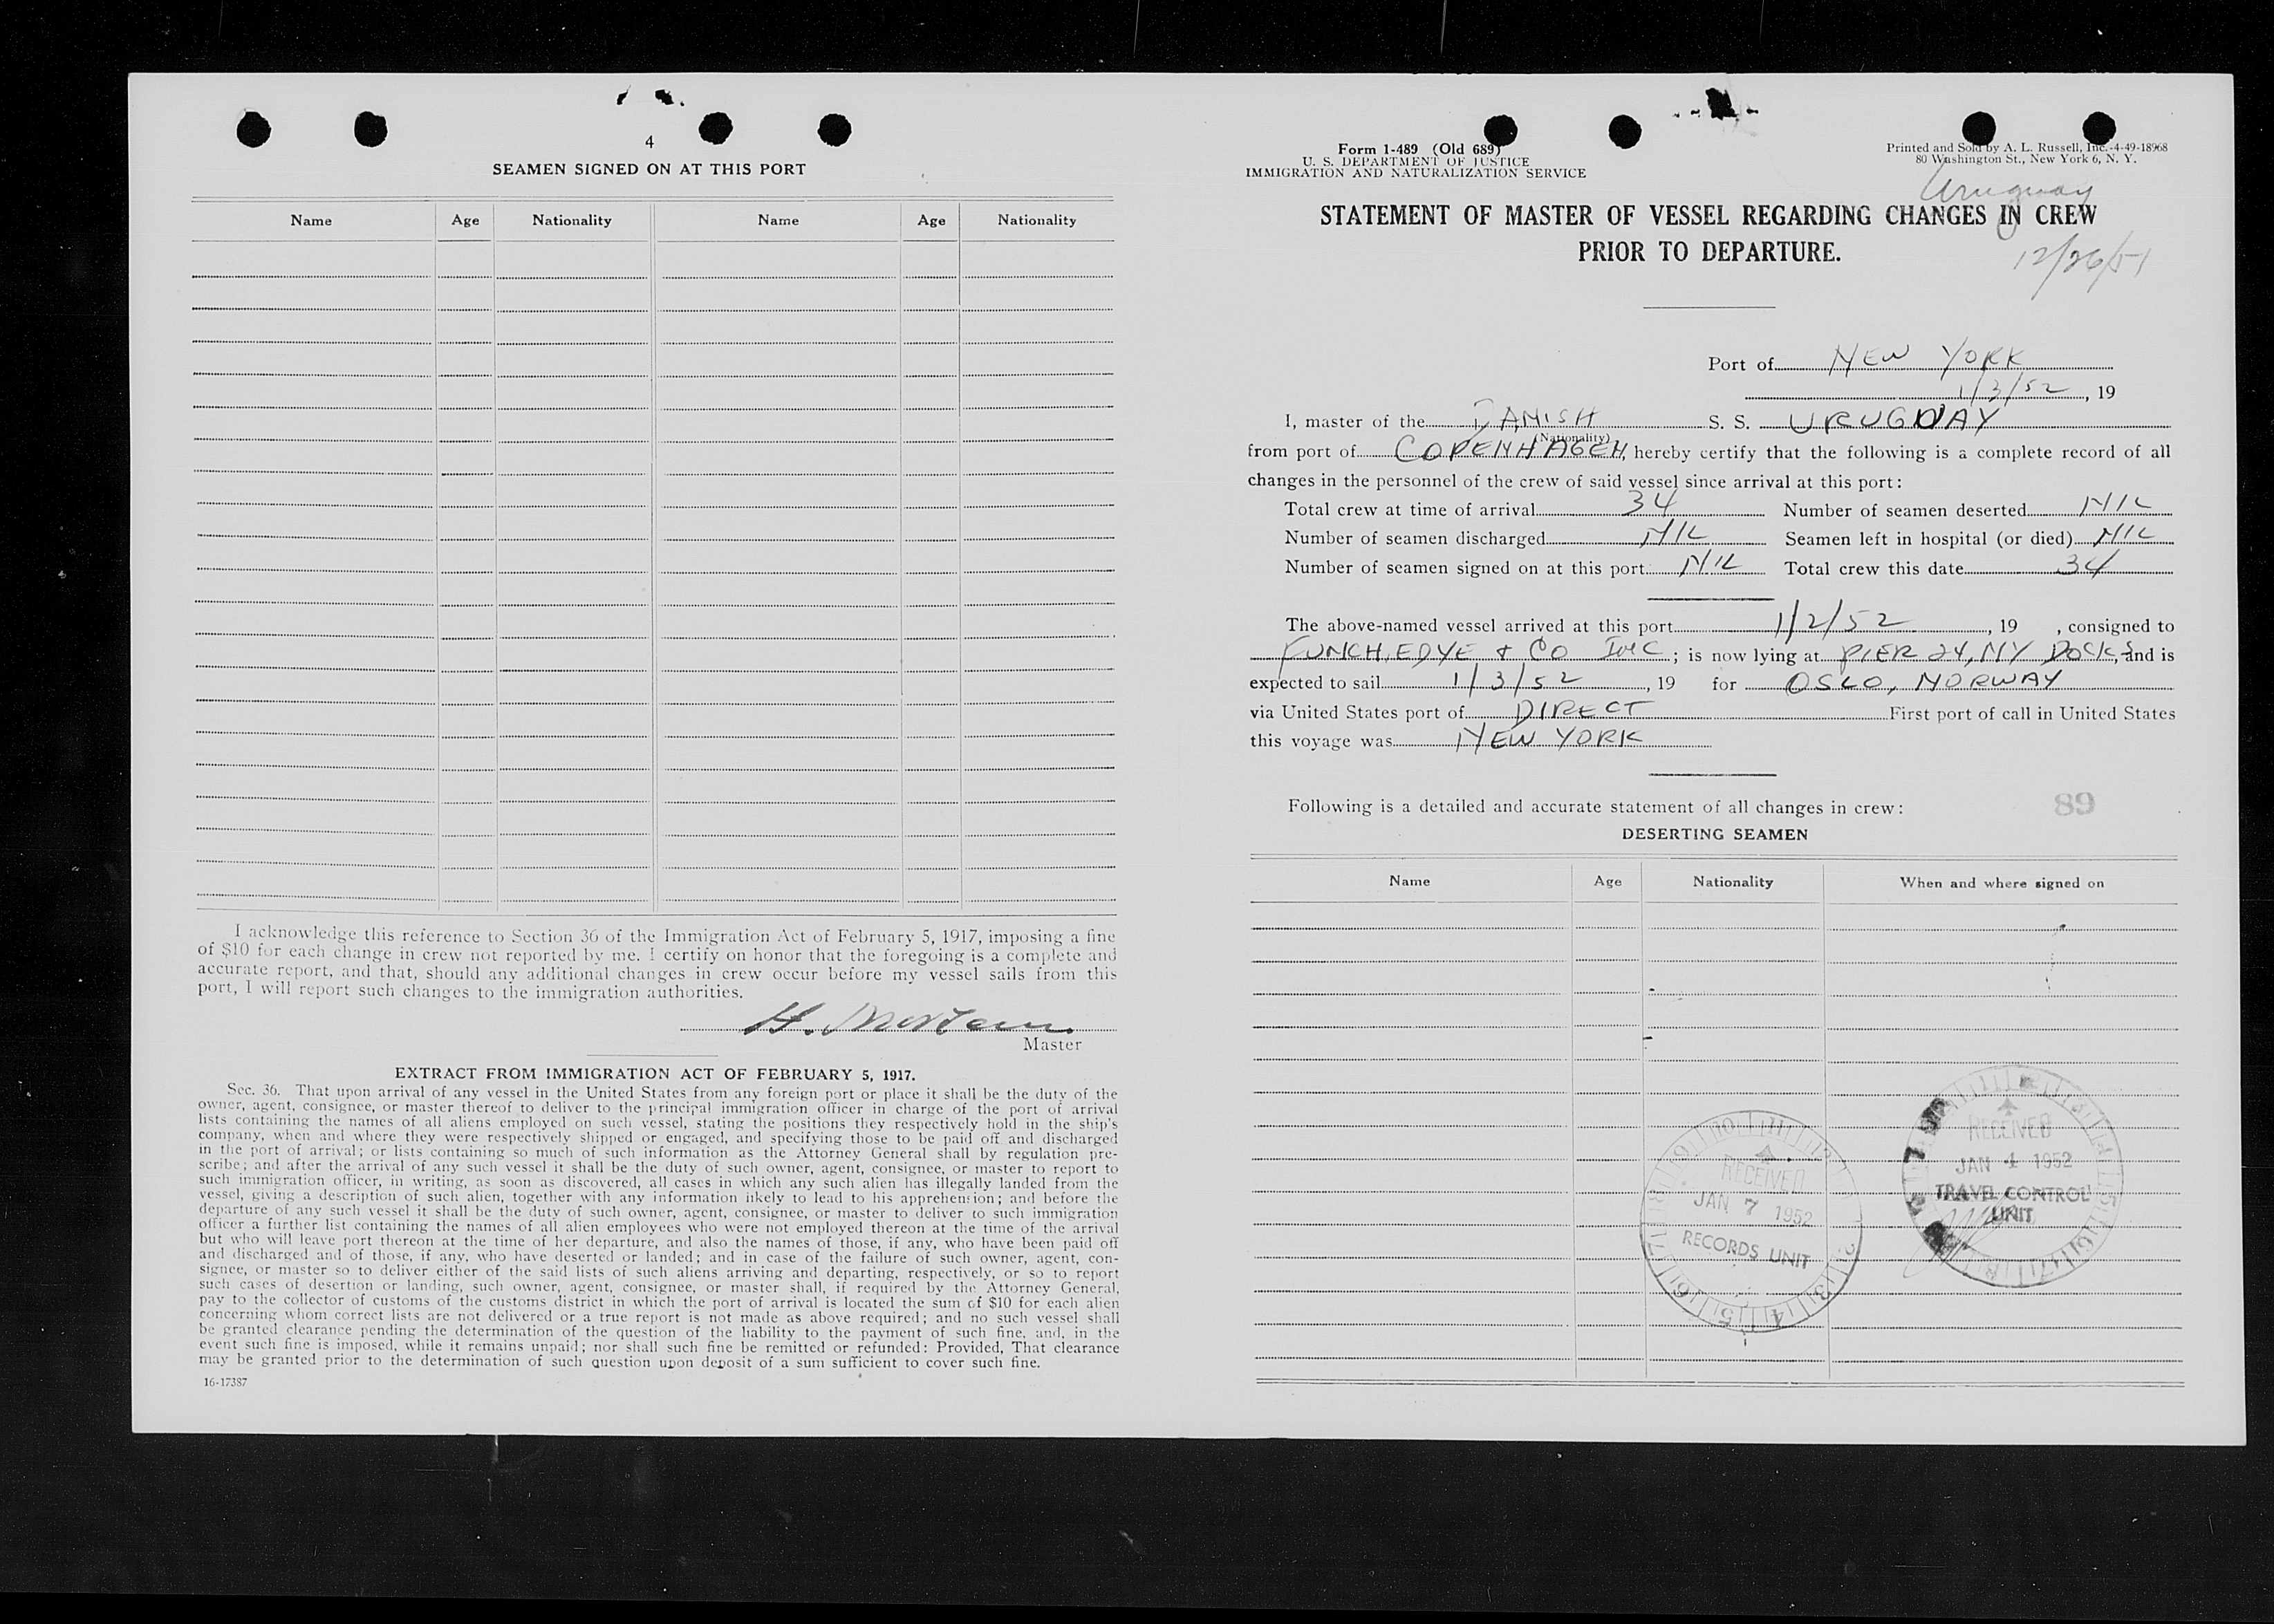 4
SEAMEN SIGNED ON AT THIS PORT
Name Age Nationality Name Age Nationality
I acknowledge this reference to Section 36 of the Immigration Act of February 5, 1917, imposing a fine
of $10 for each change in crew not reported by me. I certify on honor that the foregoing is a complete and
accurate report, and that, should any additional changes in crew occur before my vessel sails from this
port, I will report such changes to the immigration authorities.
H.
Master
EXTRACT FROM IMMIGRATION ACT OF FEBRUARY 5, 1917.
Sec. 36. That upon arrival of any vessel in the United States from any foreign port or place it shall be the duty of the
owner, agent, consignee, or master thereof to deliver to the principal immigration officer in charge of the port of arrival
lists containing the names of all aliens employed on such vessel, stating the positions they respectively hold in the ship's
company, when and where they were respectively shipped or engaged, and specifying those to be paid off and discharged
in the port of arrival; or lists containing so much of such information as the Attorney General shall by regulation pre-
scribe; and after the arrival of any such vessel it shall be the duty of such owner, agent, consignee, or master to report to
such immigration officer, in writing, as soon as discovered, all cases in which any such alien has illegally landed from the
vessel, giving a description of such alien, together with any information likely to lead to his apprehension; and before the
departure of any such vessel it shall be the duty of such owner, agent, consignee, or master to deliver to such immigration
officer a further list containing the names of all alien employees who were not employed thereon at the time of the arrival
but who will leave port thereon at the time of her departure, and also the names of those, if any, who have been paid off
and discharged and of those, if any, who have deserted or landed; and in case of the failure of such owner, agent, con-
signee, or master so to deliver either of the said lists of such aliens arriving and departing, respectively, or so to report
such cases of desertion or landing, such owner, agent, consignee, or master shall, if required by the Attorney General,
pay to the collector of customs of the customs district in which the port of arrival is located the sum of $10 for each alien
concerning whom correct lists are not delivered or a true report is not made as above required; and no such vessel shall
be granted clearance pending the determination of the question of the liability to the payment of such fine, and, in the
event such fine is imposed, while it remains unpaid; nor shall such fine be remitted or refunded: Provided, That clearance
may be granted prior to the determination of such question upon deposit of a sum sufficient to cover such fine.
16-17387
Form 1-489 (Old 689)
U. S. DEPARTMENT OF JUSTICE
IMMIGRATION AND NATURALIZATION SERVICE
Printed and Sold by A. L. Russell, Inc.-4-49-18968
80 Washington St., New York 6, N. Y.
Uruguay
STATEMENT OF MASTER OF VESSEL REGARDING CHANGES IN CREW
PRIOR TO DEPARTURE.
12/26/51
Port of NEW YORK
1/3/52, 19
I, master of the DANISH S. S. URUGUAY
(Nationality)
from port of COPENHAGEN, hereby certify that the following is a complete record of all
changes in the personnel of the crew of said vessel since arrival at this port:
Total crew at time of arrival 34 Number of seamen deserted NIL
Number of seamen discharged NIL Seamen left in hospital (or died) NIL
Number of seamen signed on at this port NIL Total crew this date 34
The above-named vessel arrived at this port 1/2/52, 19 , consigned to
FUNCH, EDYE & CO INC; is now lying at PIER 24, NY DOCKS, and is
expected to sail 1/3/52, 19 for OSLO, NORWAY
via United States port of DIRECT First port of call in United States
this voyage was NEW YORK
Following is a detailed and accurate statement of all changes in crew:
89
DESERTING SEAMEN
Name Age Nationality When and where signed on
RECEIVED
JAN 4 1952
TRAVEL CONTROL
UNIT
RECEIVED
JAN 7 1952
RECORDS UNIT